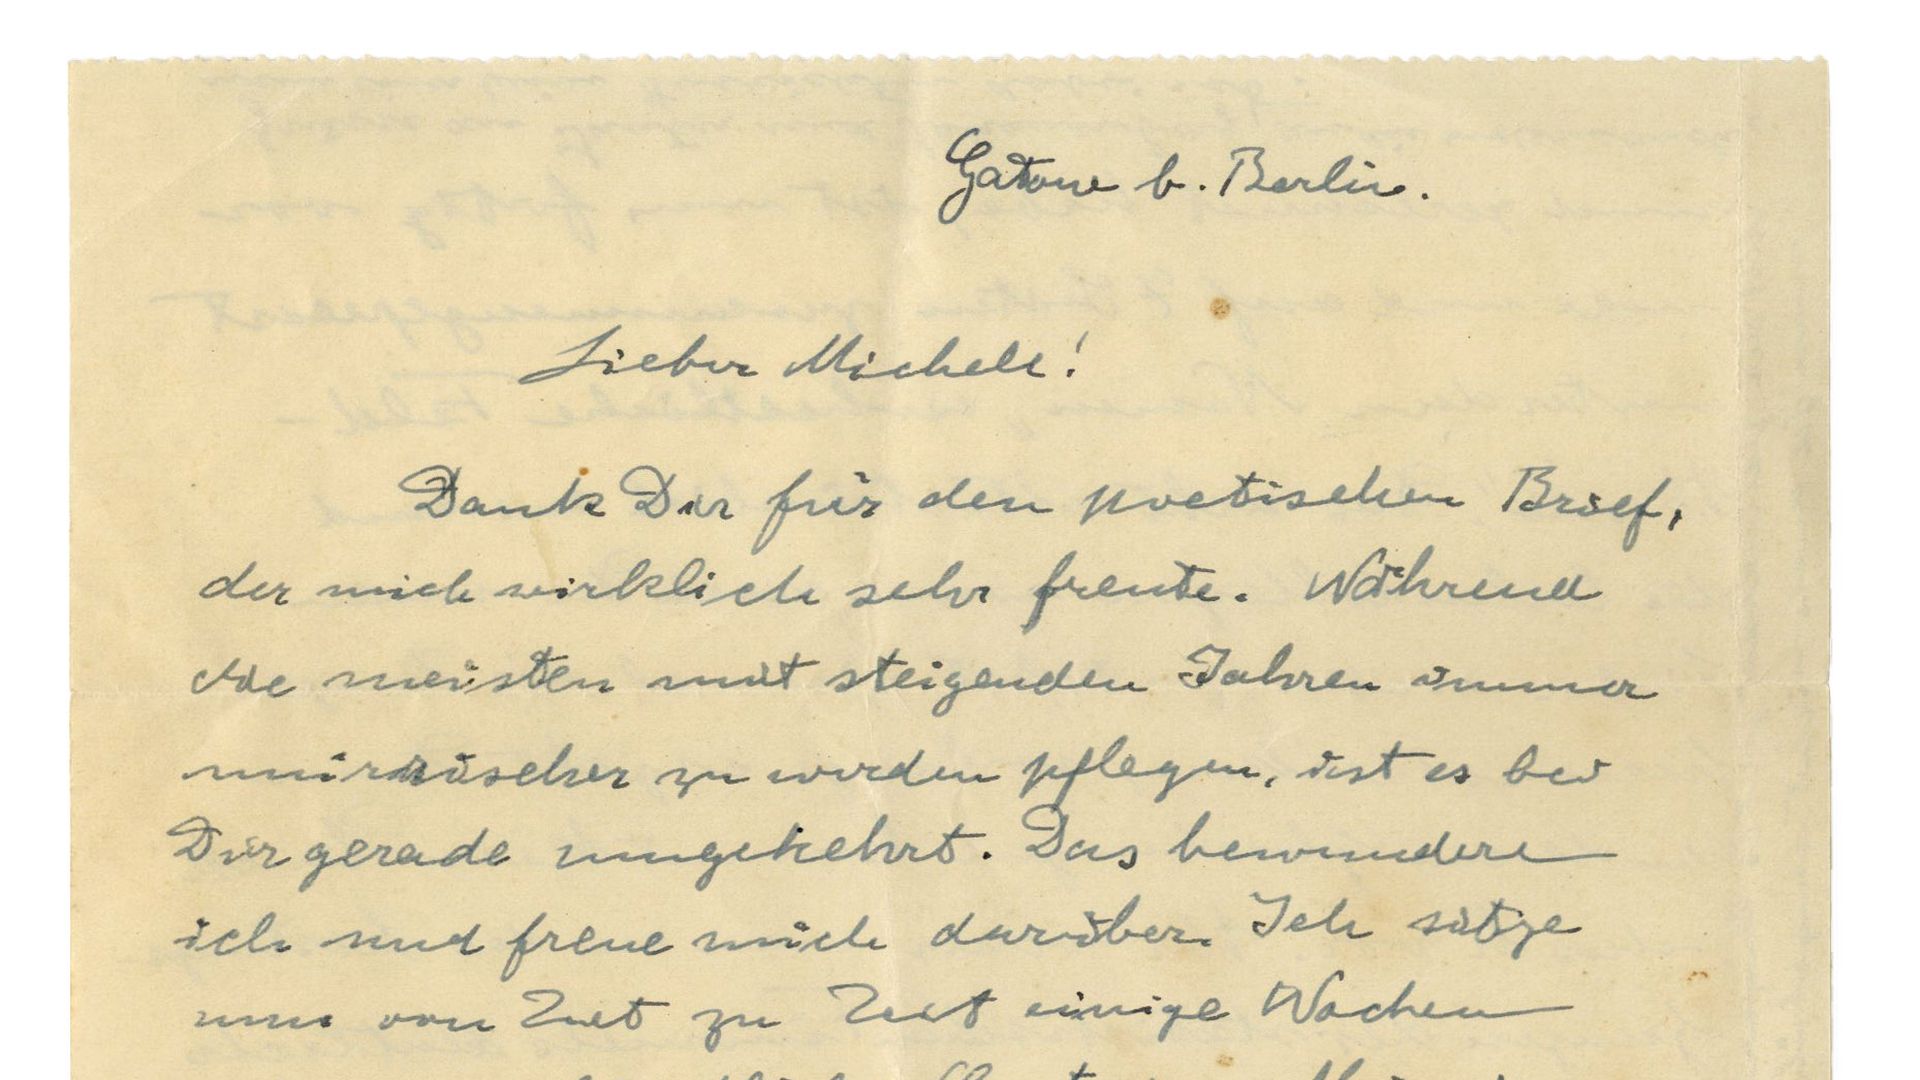 Gatow b. Berlin.
Lieber Michele!
Dank Dir für den poetischen Brief,
der mich wirklich sehr freute. Während
die meisten mit steigenden Jahren immer
mürrischer zu werden pflegen, ist es bei
Dir gerade umgekehrt. Das bewundere
ich und freue mich darüber. Ich sitze
nun von Zeit zu Zeit einige Wochen